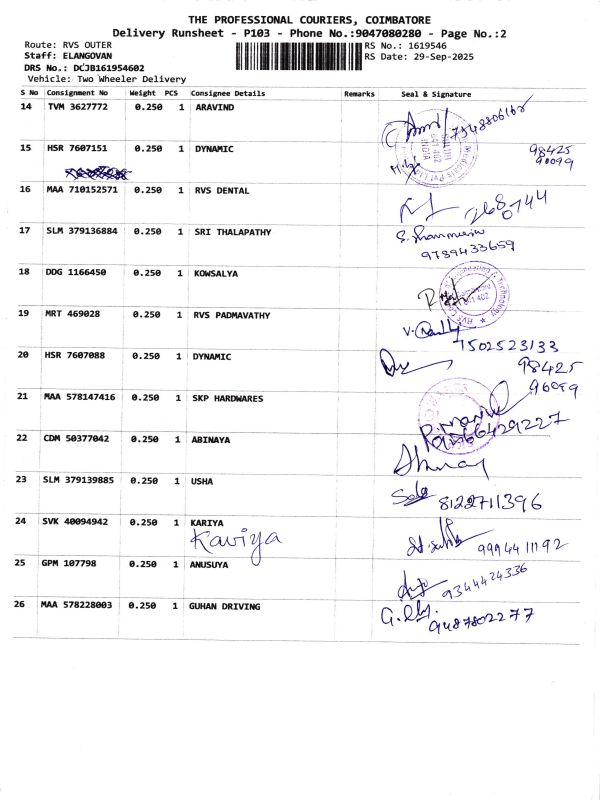 THE PROFESSIONAL COURIERS, COIMBATORE
Delivery Runsheet - P103 - Phone No.:9047080280 - Page No.:2
Route: RVS OUTER RS No.: 1619546
Staff: ELANGOVAN RS Date: 29-Sep-2025
DRS No.: DCJB161954602
Vehicle: Two Wheeler Delivery
S No Consignment No Weight PCS Consignee Details Remarks Seal & Signature
14 TVM 3627772 0.250 1 ARAVIND
15 HSR 7607151 0.250 1 DYNAMIC 98425
90099
16 MAA 710152571 0.250 1 RVS DENTAL
17 SLM 379136884 0.250 1 SRI THALAPATHY
9789433659
18 DDG 1166450 0.250 1 KOWSALYA
19 MRT 469028 0.250 1 RVS PADMAVATHY
7502523133
20 HSR 7607088 0.250 1 DYNAMIC 98425
90099
21 MAA 578147416 0.250 1 SKP HARDWARES
22 CDM 50377042 0.250 1 ABINAYA
23 SLM 379139885 0.250 1 USHA
8122711396
24 SVK 40094942 0.250 1 KARIYA
Kaviya 9994411192
25 GPM 107798 0.250 1 ANUSUYA
9344424336
26 MAA 578228003 0.250 1 GUHAN DRIVING
9487802277